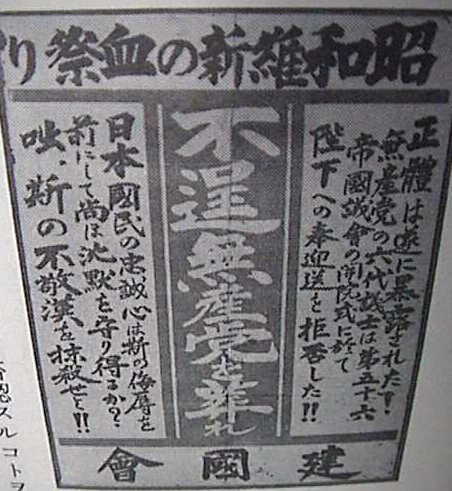 昭和維新の血祭り
正體は遂に暴露された!
無産党の六代議士は第五十六
帝國議會の開院式に於て
陛下への奉迎送を拒否した!!
不逞無産党を葬れ
日本國民の忠誠心は斯の侮辱を
前にして尚ほ沈默を守り得るか?
咄、斯の不敬漢を抹殺せよ!!
建國會
認スルコトヲ